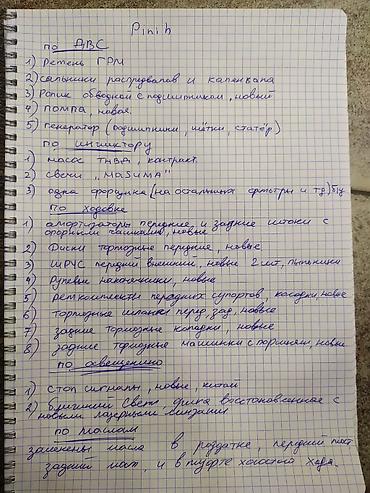 Pinih
по ДВС
1) Ремень ГРМ
2) сальники распредвалов и каленвала
3) Ролик обводной с подшипником, новый
4) помпа, новая.
5) генератор (подшипники, щётки, статер)
по инжиктору
1) насос ТНВД, контракт.
2) свечи „MASUMA"
3) одна форсунка (на остальных фильтры и тд) б/у
По ходовке
1) амортизаторы передние, и задние штоки с
опорными чашками, новые
2) Диски тормозные передние, новые
3) ШРУС передний внешний, новые 2 шт, пыльники
4) Рулевые наконечники, новые
5) Ремкомплекты передних супортов, колодки, новое
6) Тормозные шланги перед, зад, новые
7) задние тормозные колодки, новые
8) задние тормозные машинки с поршнем, новые
по освещению
1) Стоп сигналы, новые, китай
2) ближний свет, фика восстоновленное с
новыми лазерными линзами
по маслам
заменены масла в роздатке, передний мост
задний мост, и в муфте холостой хода.